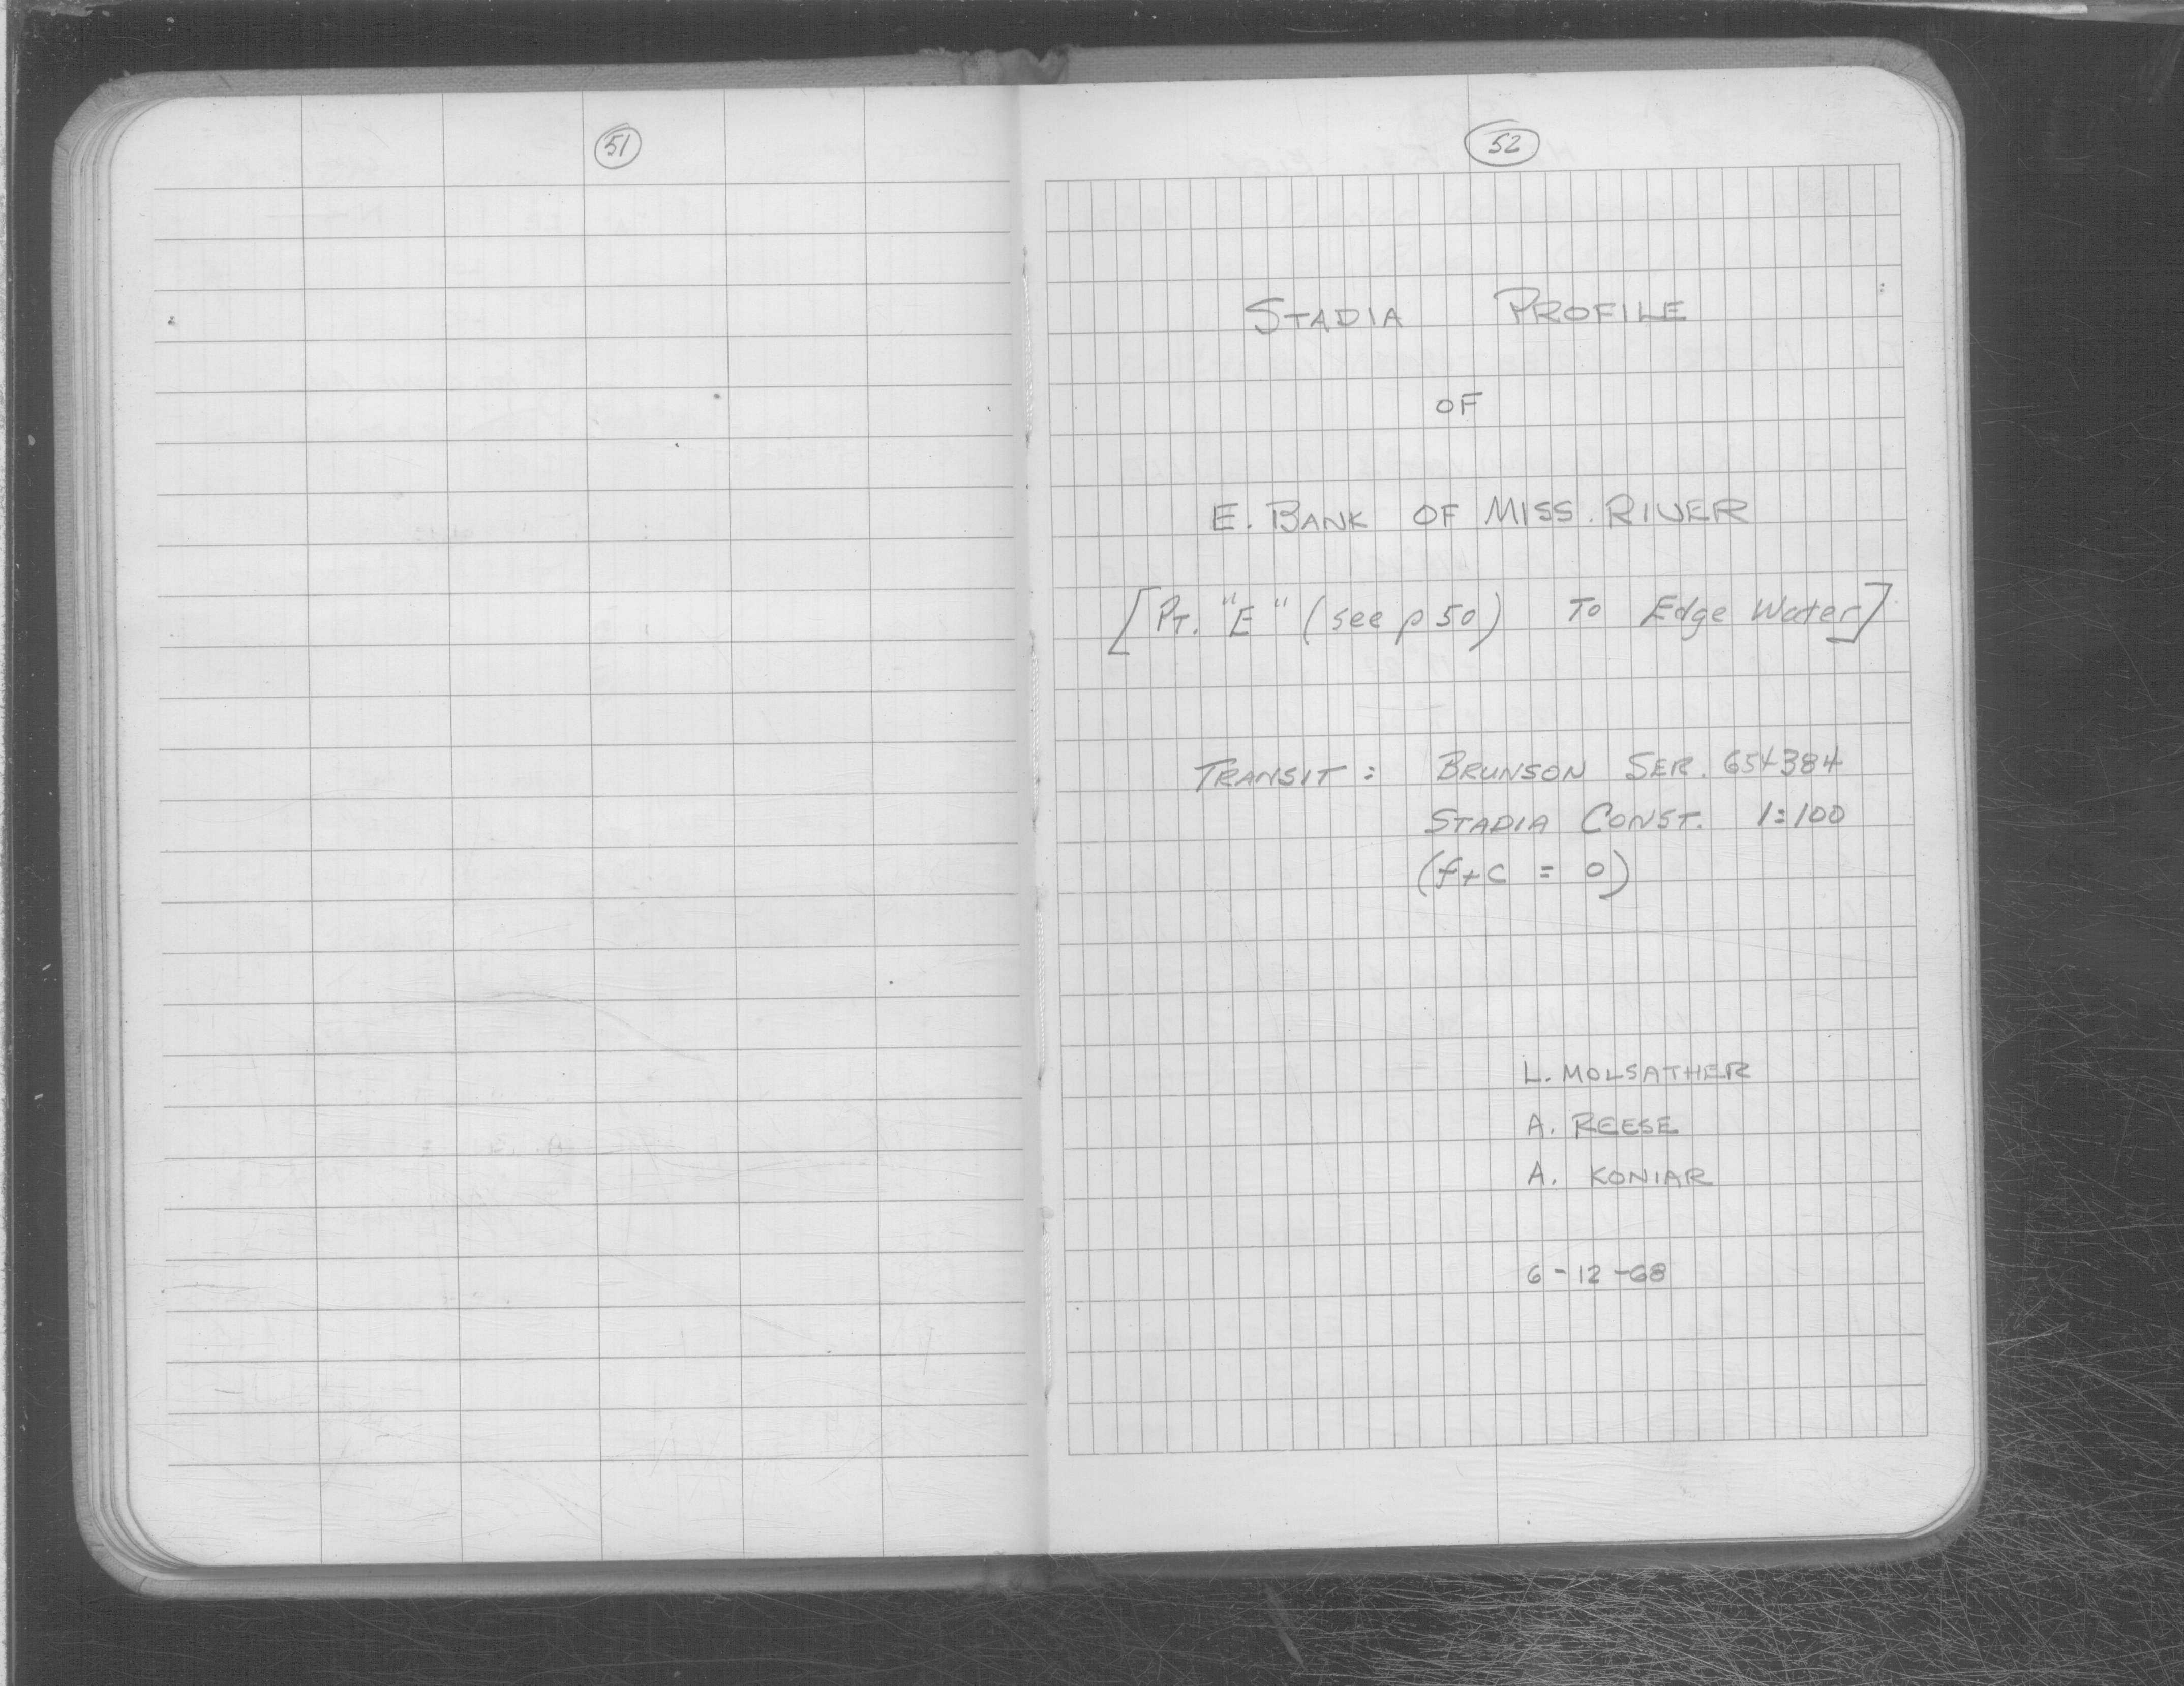 51
52
STADIA PROFILE
OF
E. BANK OF MISS. RIVER
[PT. "E" (see p 50) To Edge Water]
TRANSIT: BRUNSON SER. 654384
STADIA CONST. 1:100
(f+c = 0)
L. MOLSATHER
A. REESE
A. KONIAR
6-12-68